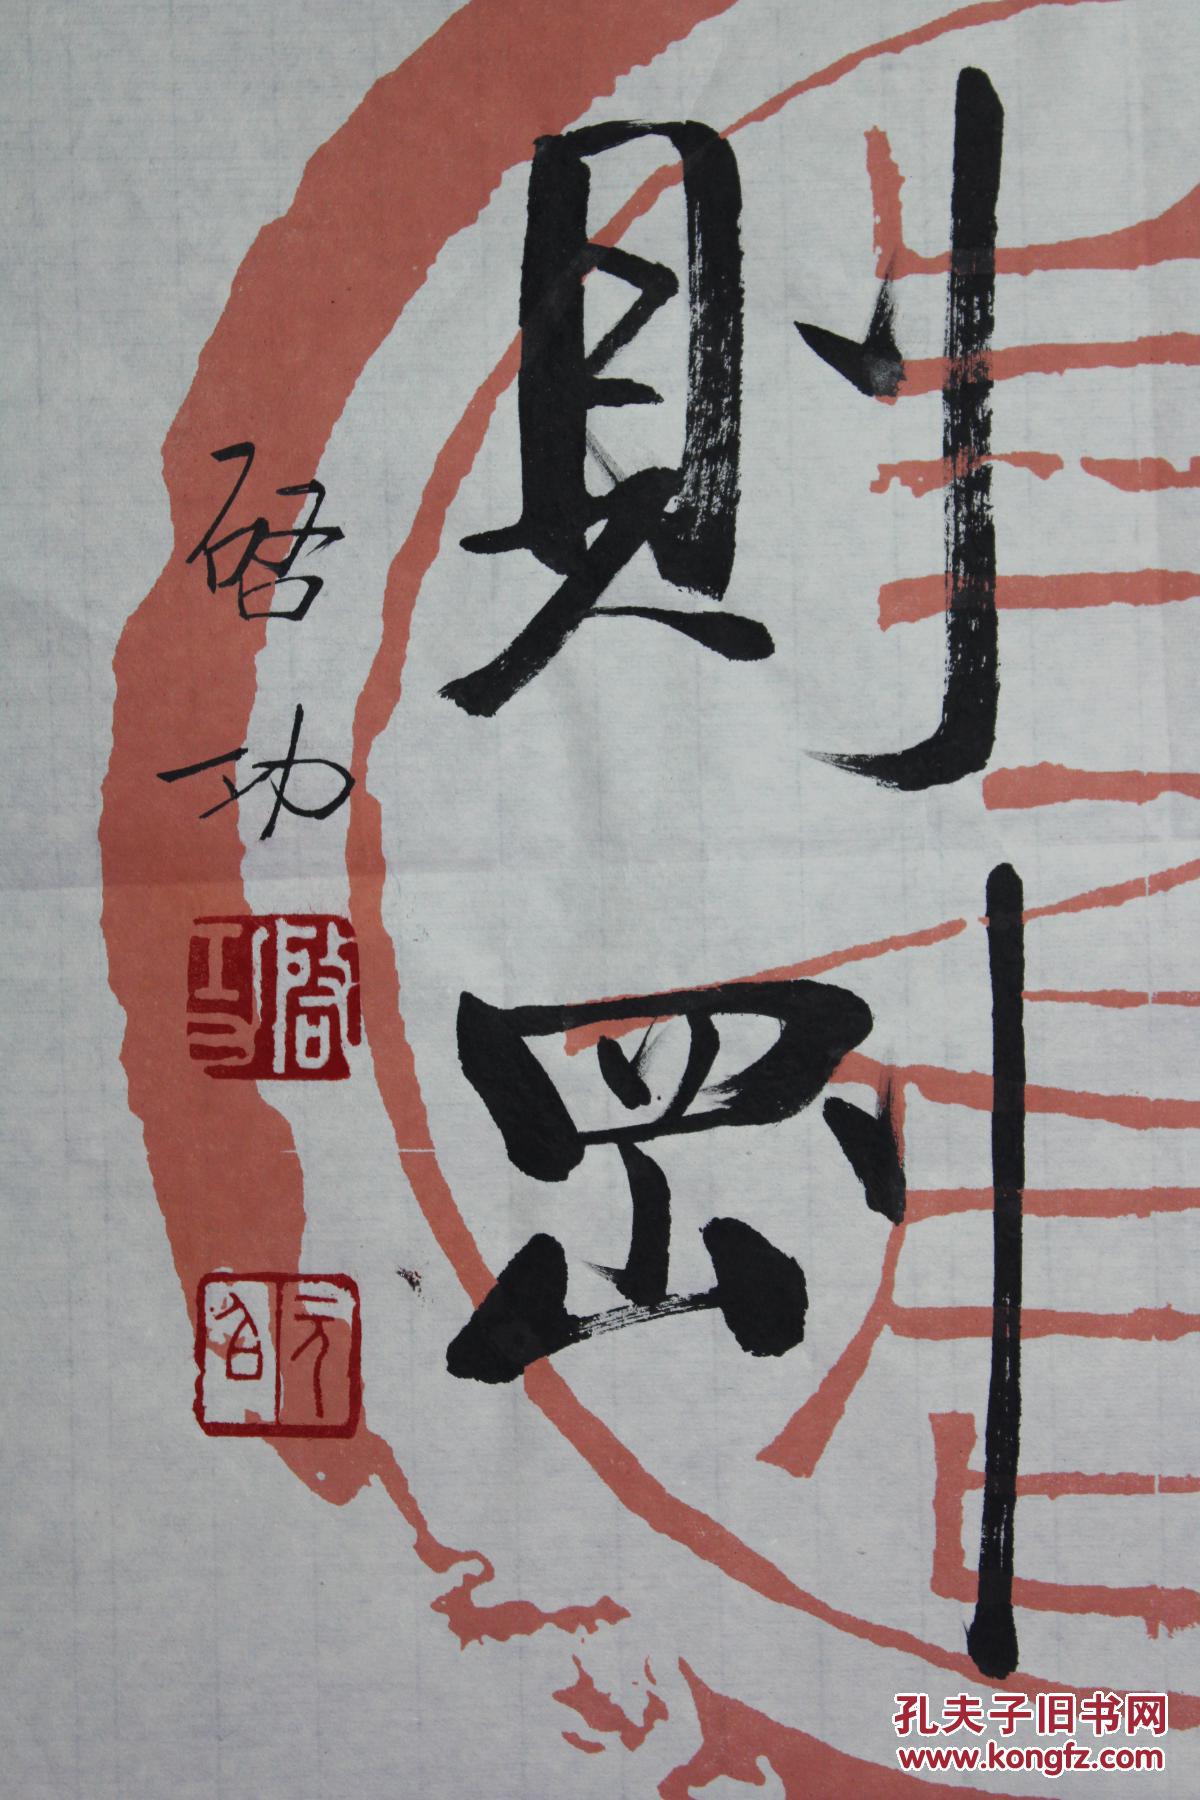 則剛
啓功
啓功
元白
孔夫子旧书网
www.kongfz.com